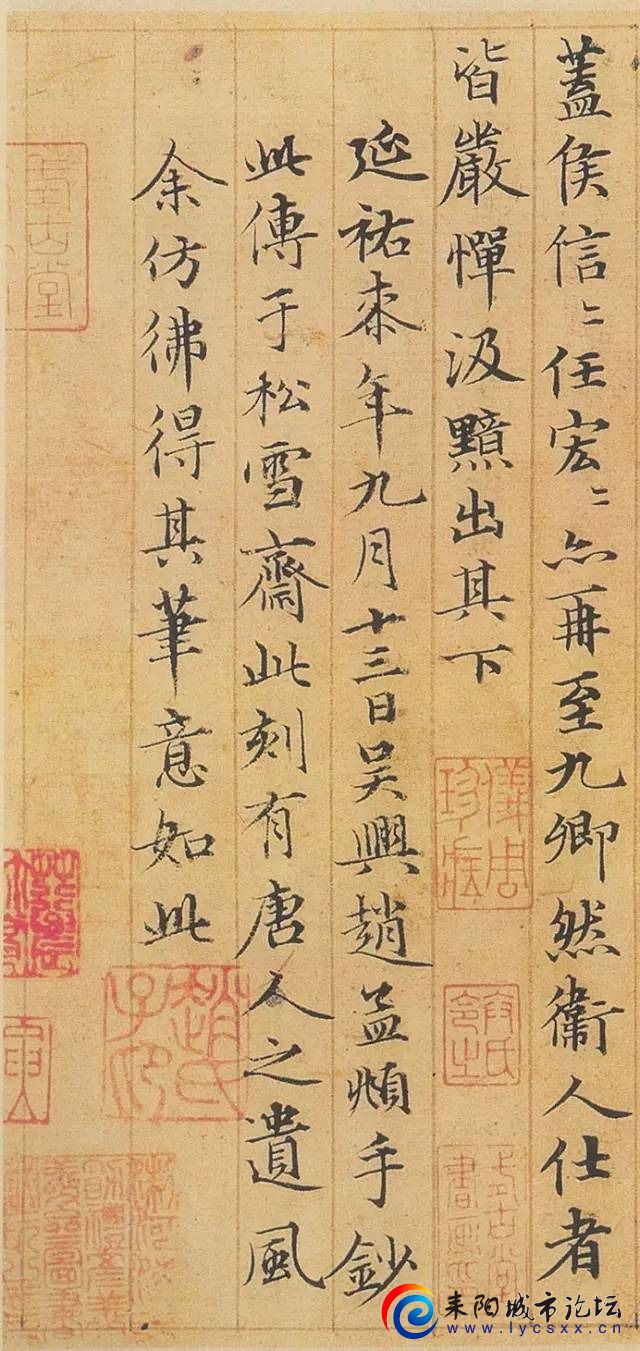 蓋侯信〻任宏〻亦再至九卿然衞人仕者
皆嚴憚汲黯出其下
延祐柒年九月十三日吴興趙孟頫手鈔
此傳于松雪齋此刻有唐人之遺風
余仿彿得其筆意如此
趙氏子昂
耒阳城市论坛
www.lycsxx.cn